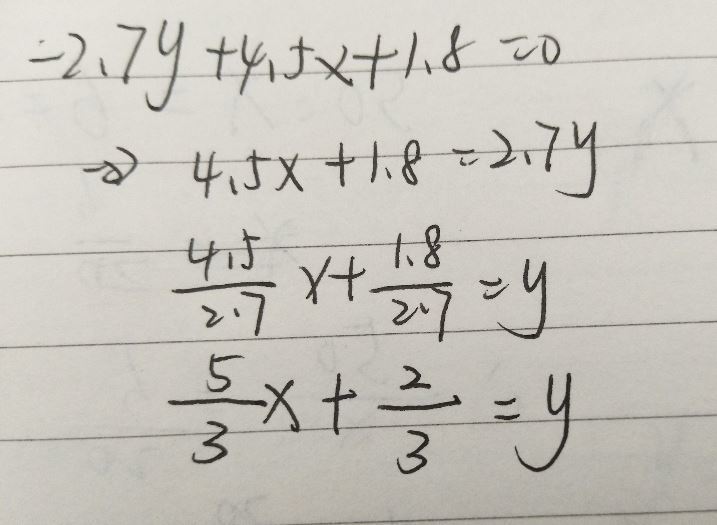 -2.7y+4.5x+1.8=0
→ 4.5x+1.8=2.7y
4.5/2.7 x+1.8/2.7=y
5/3 x+2/3=y